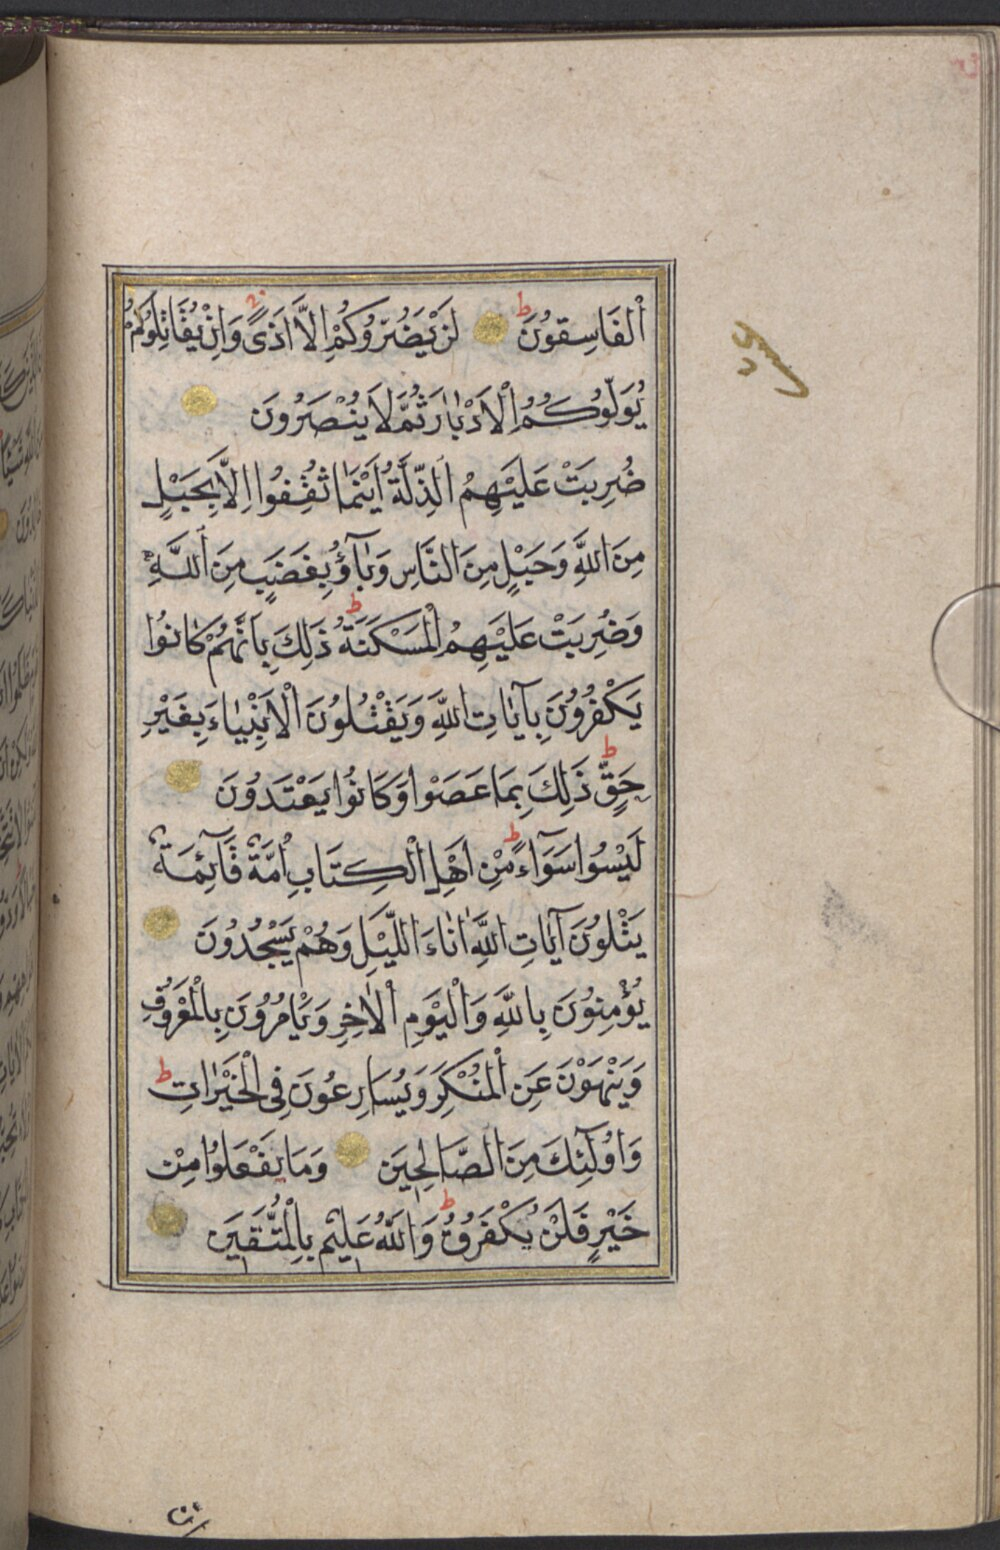 اَلْفَاسِقُونَ ط لَنْ يَضُرُّوكُمْ اِلَّا اَذًى وَاِنْ يُقَاتِلُوكُمْ
يُوَلُّوكُمُ الْاَدْبَارَ ثُمَّ لَا يُنْصَرُونَ
ضُرِبَتْ عَلَيْهِمُ الذِّلَّةُ اَيْنَمَا ثُقِفُوا اِلَّا بِحَبْلٍ
مِنَ اللّٰهِ وَحَبْلٍ مِنَ النَّاسِ وَبَآؤُ بِغَضَبٍ مِنَ اللّٰهِ
وَضُرِبَتْ عَلَيْهِمُ الْمَسْكَنَةُ ط ذٰلِكَ بِاَنَّهُمْ كَانُوا
يَكْفُرُونَ بِآيَاتِ اللّٰهِ وَيَقْتُلُونَ الْاَنْبِيَاءَ بِغَيْرِ
حَقٍّ ط ذٰلِكَ بِمَا عَصَوْا وَكَانُوا يَعْتَدُونَ
لَيْسُوا سَوَآءً ط مِنْ اَهْلِ الْكِتَابِ اُمَّةٌ قَآئِمَةٌ
يَتْلُونَ آيَاتِ اللّٰهِ اٰنَاءَ الَّيْلِ وَهُمْ يَسْجُدُونَ
يُؤْمِنُونَ بِاللّٰهِ وَالْيَوْمِ الْاٰخِرِ وَيَاْمُرُونَ بِالْمَعْرُوفِ
وَيَنْهَوْنَ عَنِ الْمُنْكَرِ وَيُسَارِعُونَ فِي الْخَيْرَاتِ ط
وَاُولٰٓئِكَ مِنَ الصَّالِحِينَ وَمَا يَفْعَلُوا مِنْ
خَيْرٍ فَلَنْ يُكْفَرُوهُ ط وَاللّٰهُ عَلِيمٌ بِالْمُتَّقِينَ